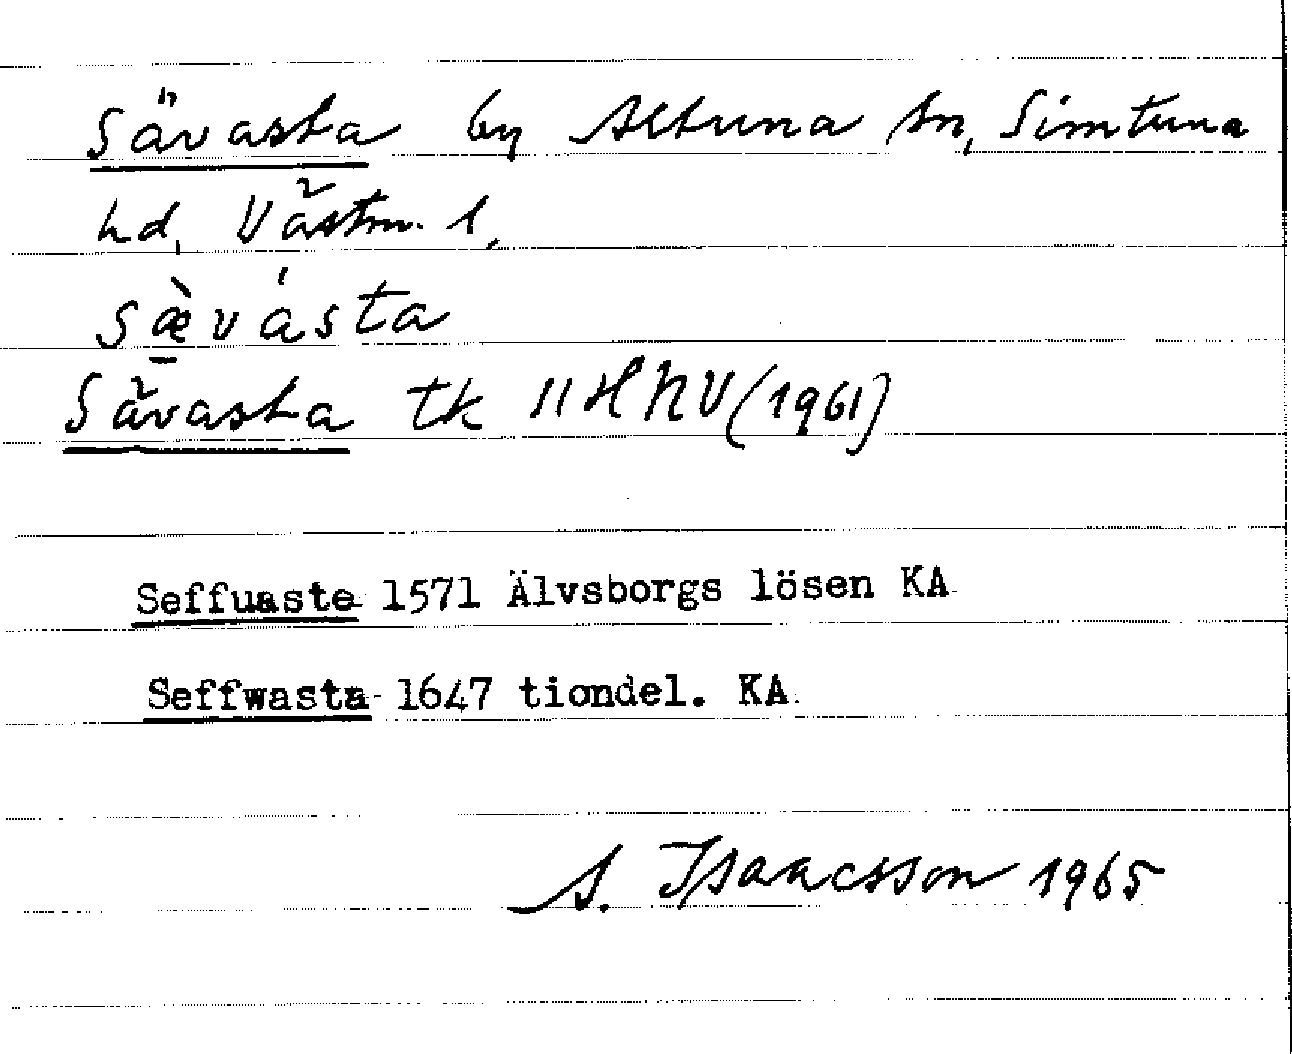 Sävasta by Altuna sn, Simtuna
hd, Västm. l,
sæ̀vásta
Sävasta tk 11H NV (1961)
Seffuaste 1571 Älvsborgs lösen KA
Seffwasta 1647 tiondel. KA
S. Isaacsson 1965